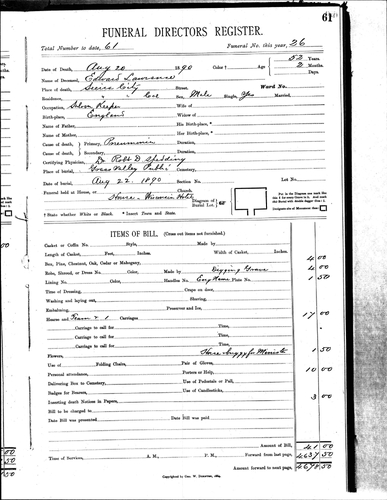 61
FUNERAL DIRECTORS REGISTER.
Total Number to date, 61 Funeral No. this year, 26
Date of Death, Aug 20 1890 Color † Age 52 Years
Name of Deceased, Edward Lawrence 2 Months
Place of death, City Ward No. Days.
Residence, " " Cal Sex, Male Single, Yes Married,
Occupation, Keeper Wife of
Birth-place, England Widow of
Name of Father, His Birth-place,*
Name of Mother, Her Birth-place,*
Cause of death, Primary, Pneumonia Duration,
Cause of death, Secondary, Duration,
Certifying Physician, Dr Robt D. Spedding
Place of burial, Valley Public Lot No.
Date of burial, Aug 22. 1890 Section No.
Funeral held at Home, or Church
House.
Diagram of Burial Lot,
† State whether White or Black. * Insert Town and State.
ITEMS OF BILL. (Cross out items not furnished).
Casket or Coffin No. Style, Made by
Length of Casket, Feet Inches. Width of Casket, Inches.
Box, Pine, Chestnut, Oak, Cedar or Mahogany,
Robe, Shroud, or Dress No. Color, Made by Digging Grave 4 00
Lining No. Color, Handles No. Plate No. 1 50
Time of Dressing, Crape on door,
Washing and laying out, Shaving,
Embalming, Preserver and Ice,
Hearse and Team & 1 Carriages 17 00
Carriage to call for Time,
Carriage to call for Time,
Carriage to call for Time,
Flowers, Horse buggy for Minister 1 50
Use of Folding Chairs, Pair of Gloves,
Personal attendance, Porters or Help, 10 00
Delivering Box to Cemetery, Use of Pedestals or Pall,
Badges for Bearers, Use of Candlesticks,
Inserting death Notices in Papers, 3 00
Bill to be charged to
Date Bill was presented Date Bill was paid
Amount of Bill, 41 00
Time of Services, A. M., P. M., Forward from last page, 4637.50
Amount forward to next page, 4678.50